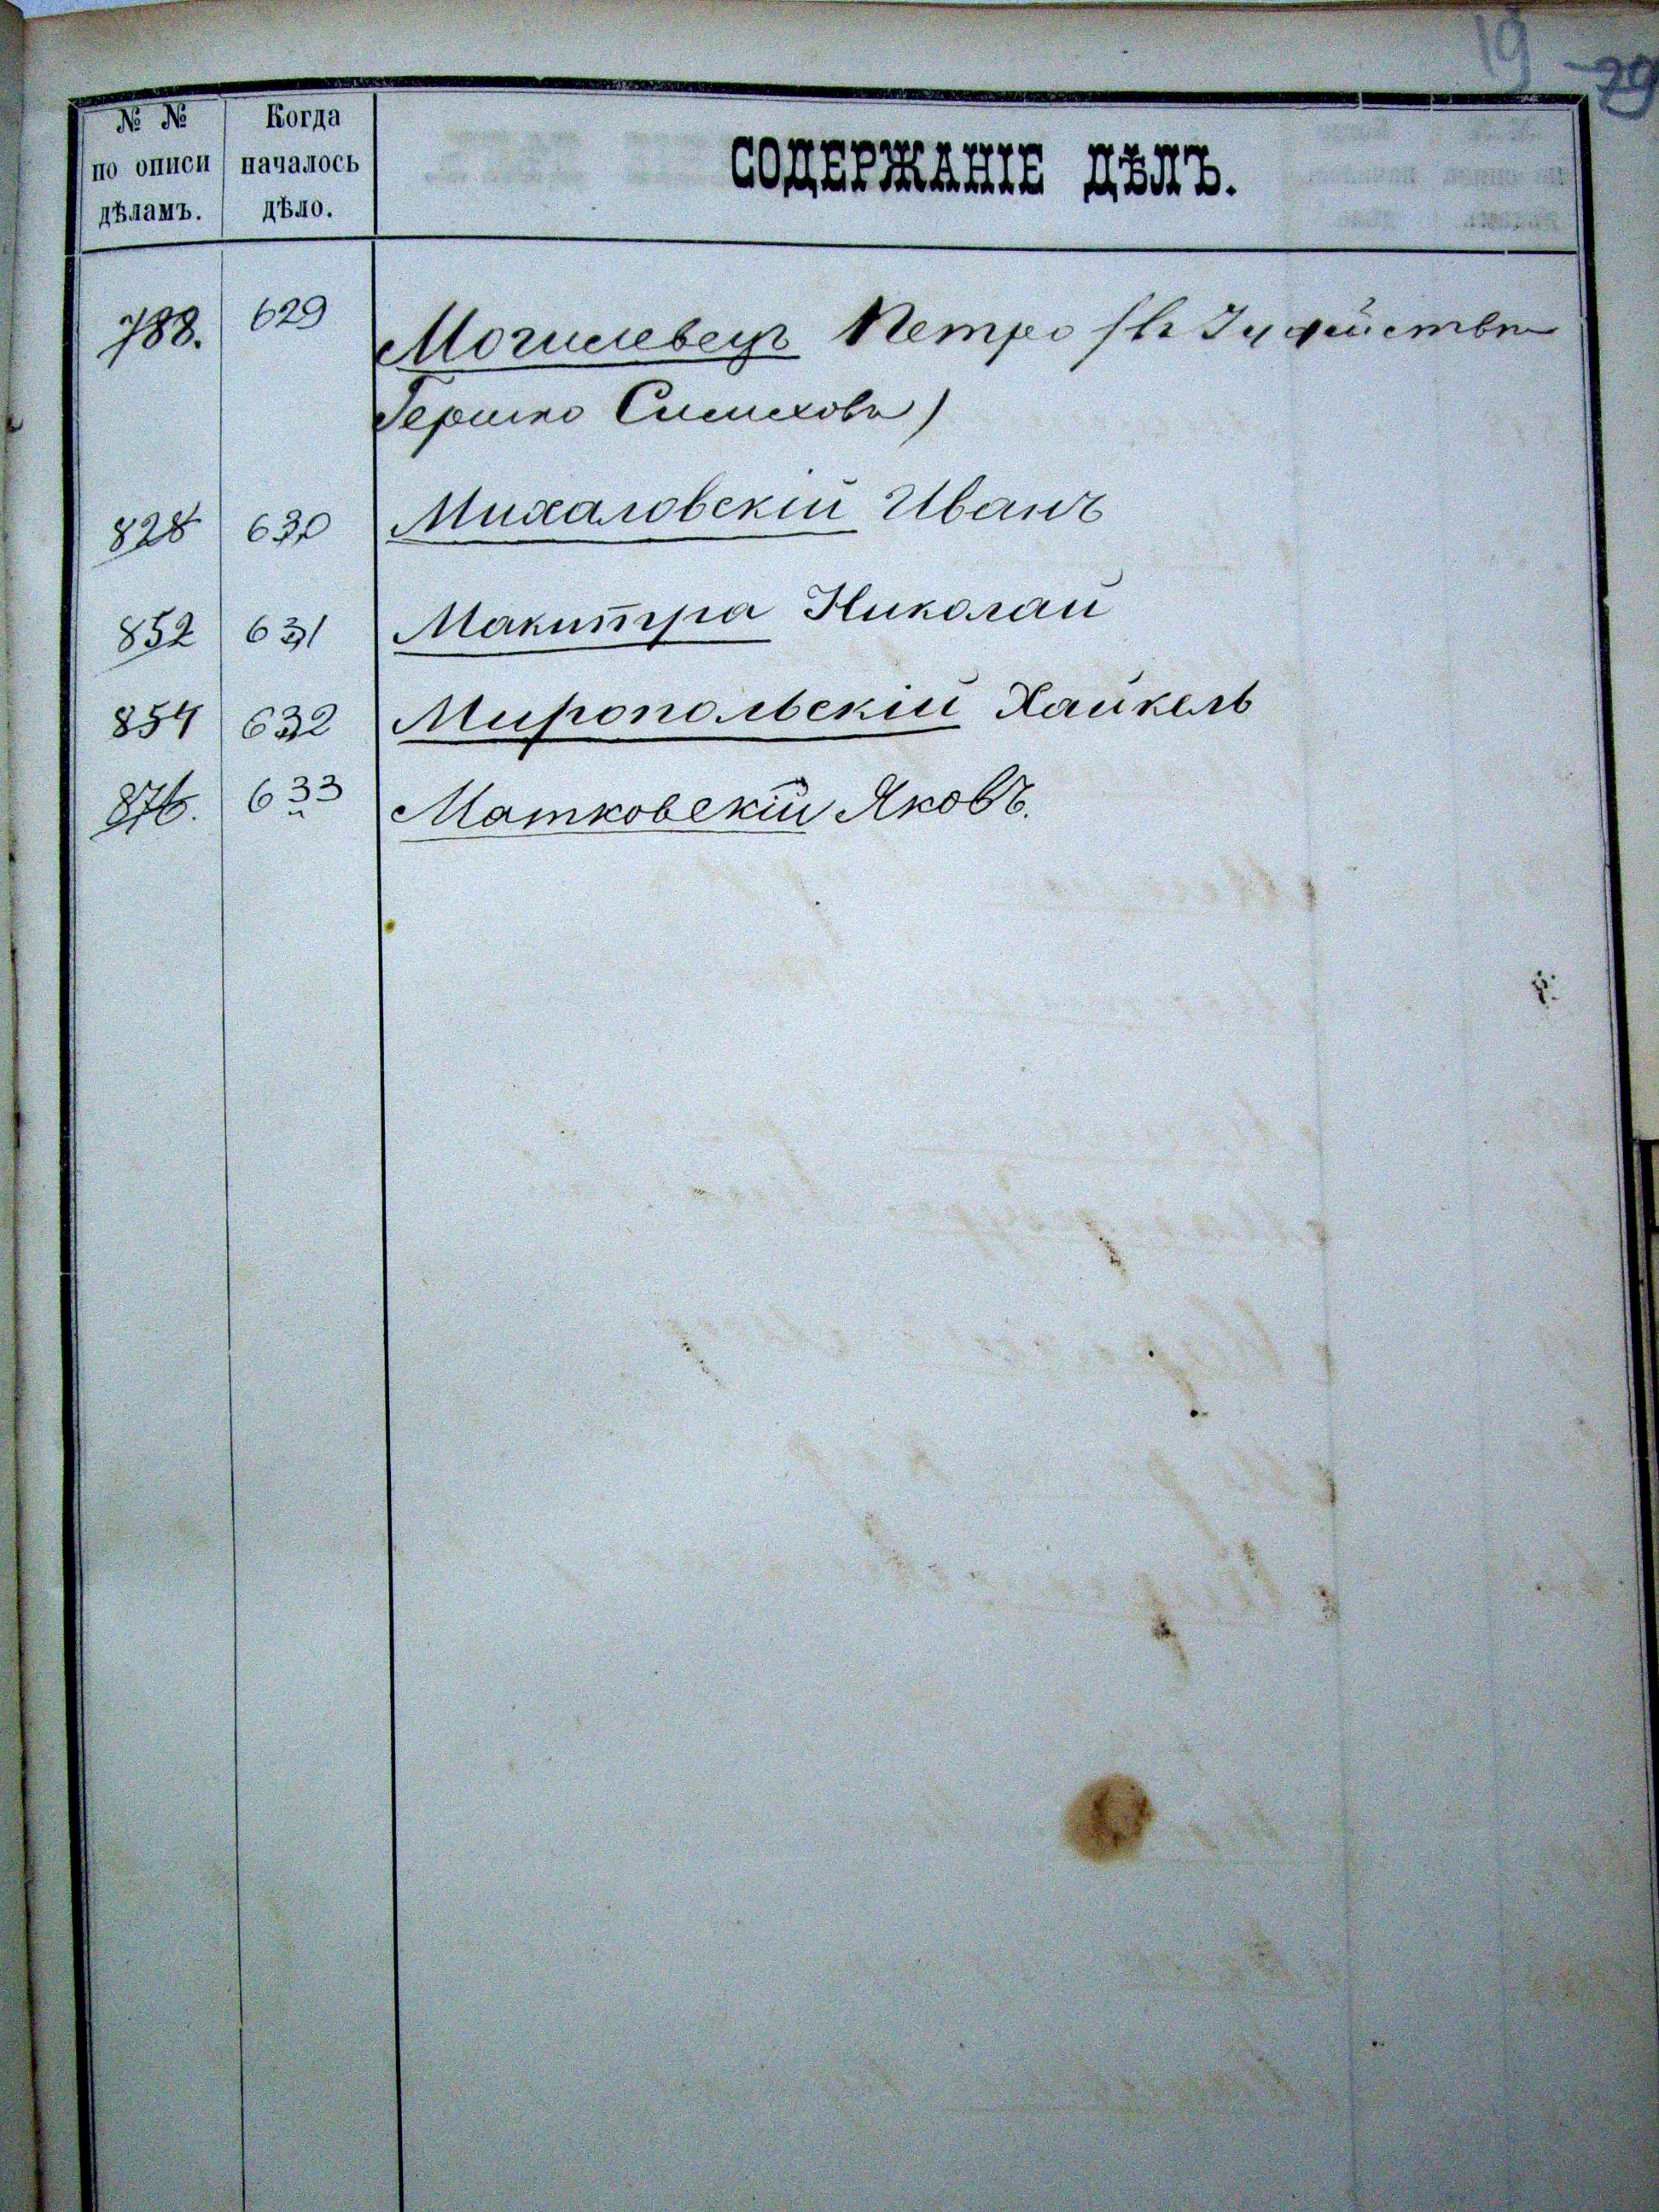 19 29
№ № Когда
по описи началось СОДЕРЖАНІЕ ДѢЛЪ.
дѣламъ. дѣло.
788. 629 Могилевецъ Петро (въ Іудействѣ
Гершко Симхова)
828 630 Михаловскій Иванъ
852 631 Макитра Николай
854 632 Миропольскій Хайкель
876. 633 Матковскій Яковъ.